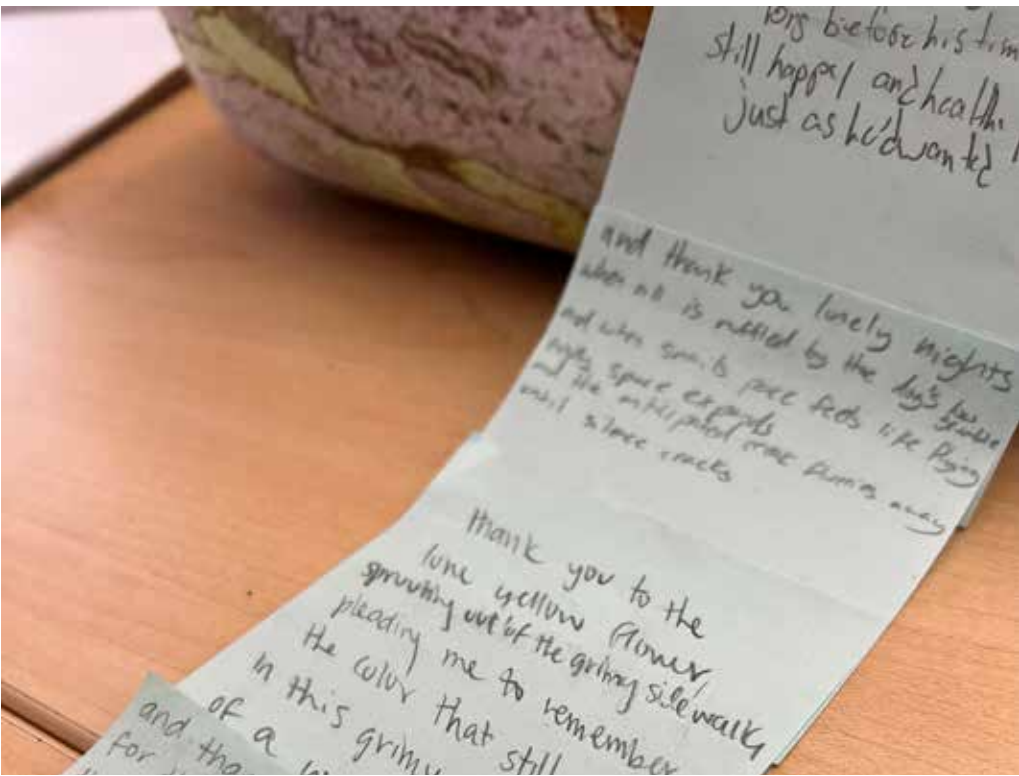 long before his tim
still happy and healthy
just as he'd wanted
and thank you lonely nights
when all is muffled by the day's low
and when small space feels like flying
space expands
and the anticipated away
until silence cracks
thank you to the
lone yellow flower,
sprouting out of the grimy sidewalk,
pleading me to remember
the color that still
in this grimy
of a
and tha
for